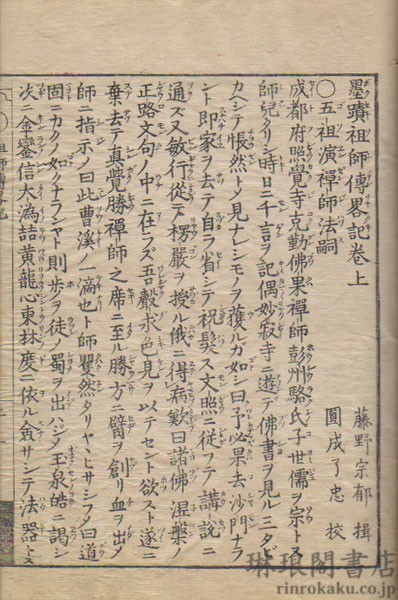 墨蹟祖師傳畧記卷上
藤野宗郁 揖
圓成了忠 校
〇五祖演禪師法嗣
成都府照覺寺克勤佛果禪師彭州駱氏子世儒ヲ宗トス
師兒タリシ時日ニ千言ヲ記偶妙寂寺ニ遊デ佛書ヲ見ルニタビ
カヘシテ悵然トノ見ナレシモノヲ獲ルガ如シ曰予必果去沙門ナラ
ント即家ヲ去テ自ラ省シテ祝髪ス文照ニ従フテ講説ニ
通ズ又敏行從テ楞嚴ヲ授ル俄ニ得病歎曰諸佛涅槃ノ
正路文句ノ中ニ在ラズ吾聲求色見ヲ以テセント欲スト遂ニ
棄去テ真覺勝禪師之席ニ至ル勝方ニ臂ヲ創リ血ヲ出メ
師ニ指示ノ曰此曹溪ノ一滴也ト師矍然タリヤヽヒサシフメ曰道
固ニカクノ如クナランヤト則歩ヲ徒ノ蜀ヲ出ハジメ玉泉皓ニ謁シ
次ニ金鑾信大潙喆黄龍心東林度ニ依ル僉サシテ法器トス
琳琅閣書店
rinrokaku.co.jp